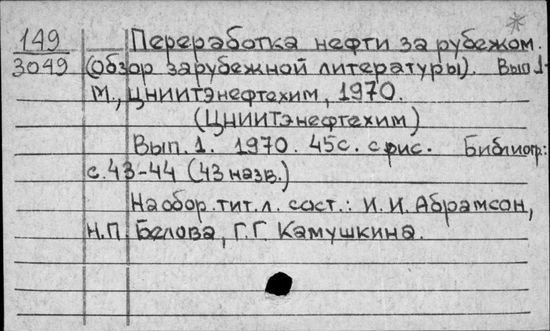 149 Переработка нефти за рубежом.
3049 (обзор зарубежной литературы). Вып 1-
М., ЦНИИТЭнефтехим, 1970.
(ЦНИИТЭнефтехим)
Вып. 1. 1970. 45с. с рис. Библиогр.:
с. 43-44 (43 назв.)
На обор. тит. л. сост.: И. И. Абрамсон,
Н.П. Белова, Г.Г. Камушкина.